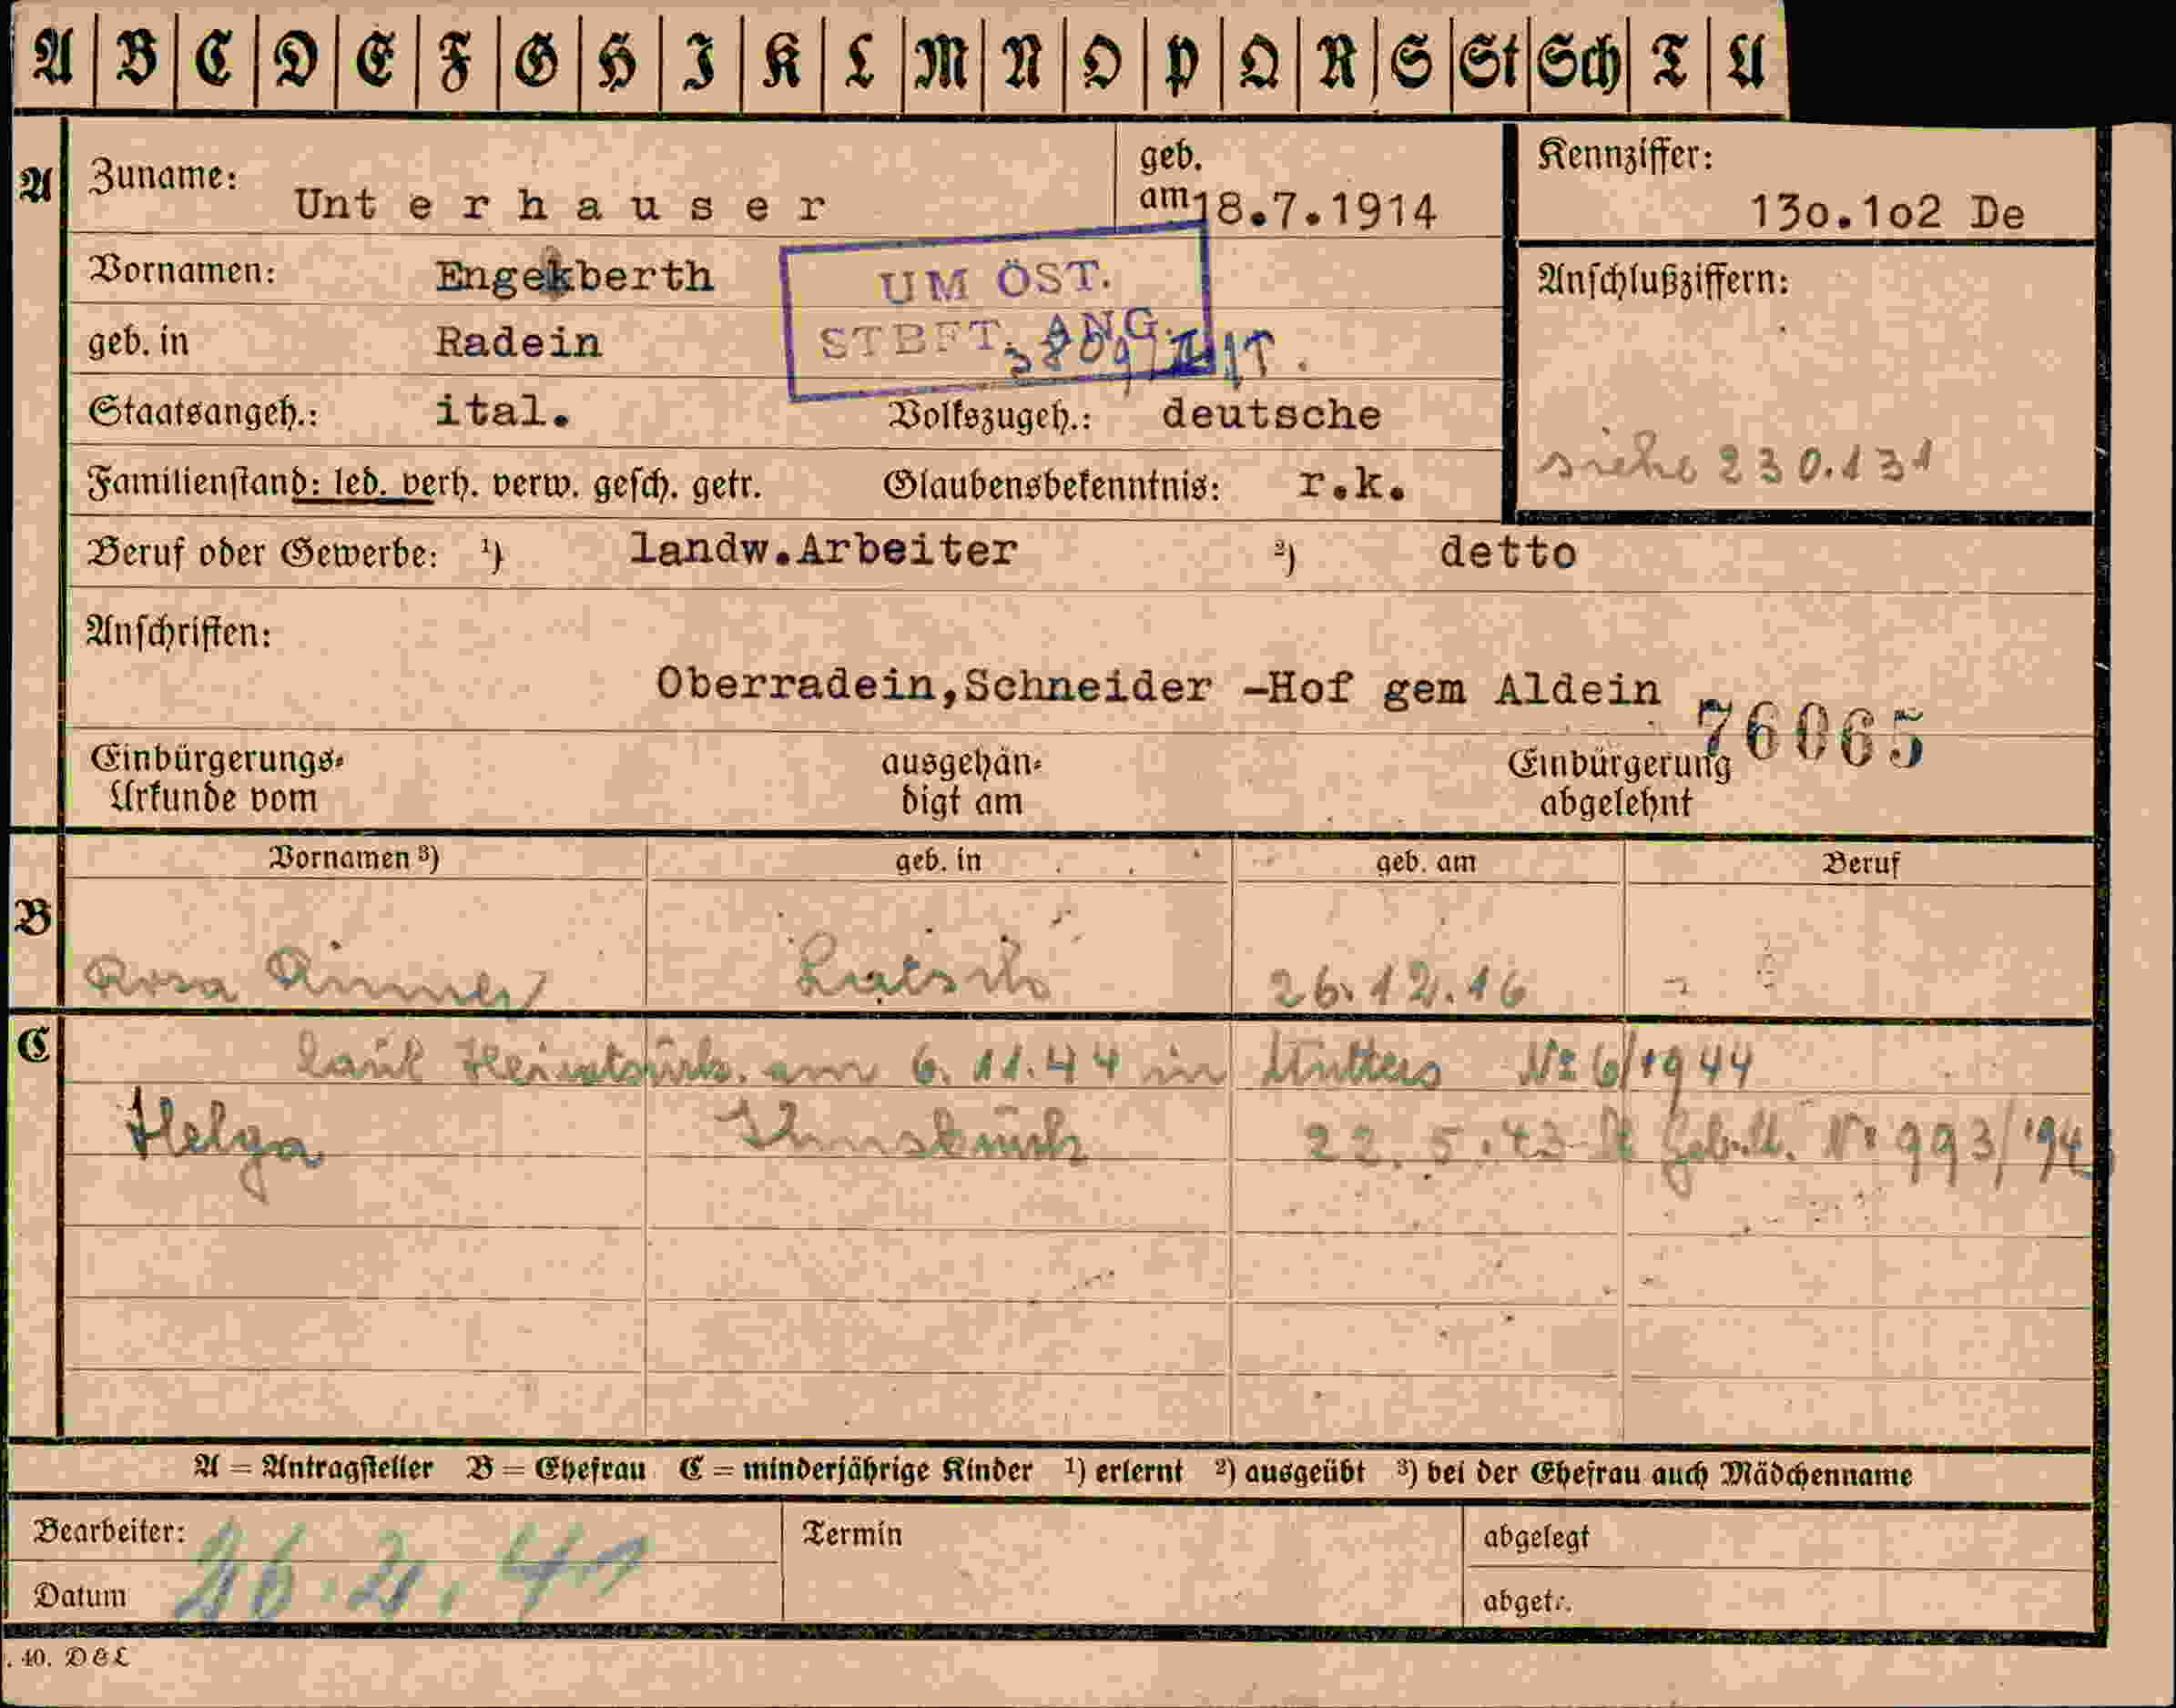 A B C D E F G H I K L M N O P Q R S St Sch T U
A
Zuname: Unterhauser
geb. am 18.7.1914
Kennziffer:
13o.1o2 De
Vornamen: Engekberth
UM ÖST.
STBFT. ANG.
Anschlußziffern:
geb. in Radein
Staatsangeh.: ital. Volkszugeh.: deutsche
siehe 230.131
Familienstand: led. verh. verw. gesch. getr. Glaubensbekenntnis: r.k.
Beruf oder Gewerbe: ¹) landw.Arbeiter ²) detto
Anschriften:
Oberradein,Schneider -Hof gem Aldein
76065
Einbürgerungs-
Urkunde vom
ausgehän-
digt am
Einbürgerung
abgelehnt
Vornamen ³) geb. in geb. am Beruf
B
Rosa Rinner Latsch 26.12.16
C
laut Heiratsurk. am 6.11.44 in Mutters № 6/1944
Helga Innsbruck 22.5.43 Geb. U. № 993/194
A = Antragsteller B = Ehefrau C = minderjährige Kinder ¹) erlernt ²) ausgeübt ³) bei der Ehefrau auch Mädchenname
Bearbeiter:
Termin
abgelegt
Datum
abgetr.
. 40. D & L